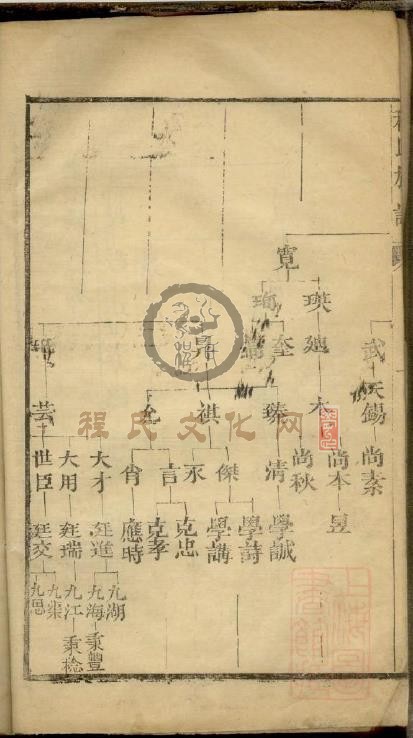 程氏族譜
寬
瑛
珣
武
奎
昇
天錫
臻
祺
允
芸
尚素
尚本
尚秋
清
傑
永
言
肖
大才
大用
世臣
昱
學誠
學詩
學講
克忠
克孝
應時
廷進
廷瑞
廷交
九湖
九海
九江
九渠
九邑
秉豐
秉稔
程氏文化网